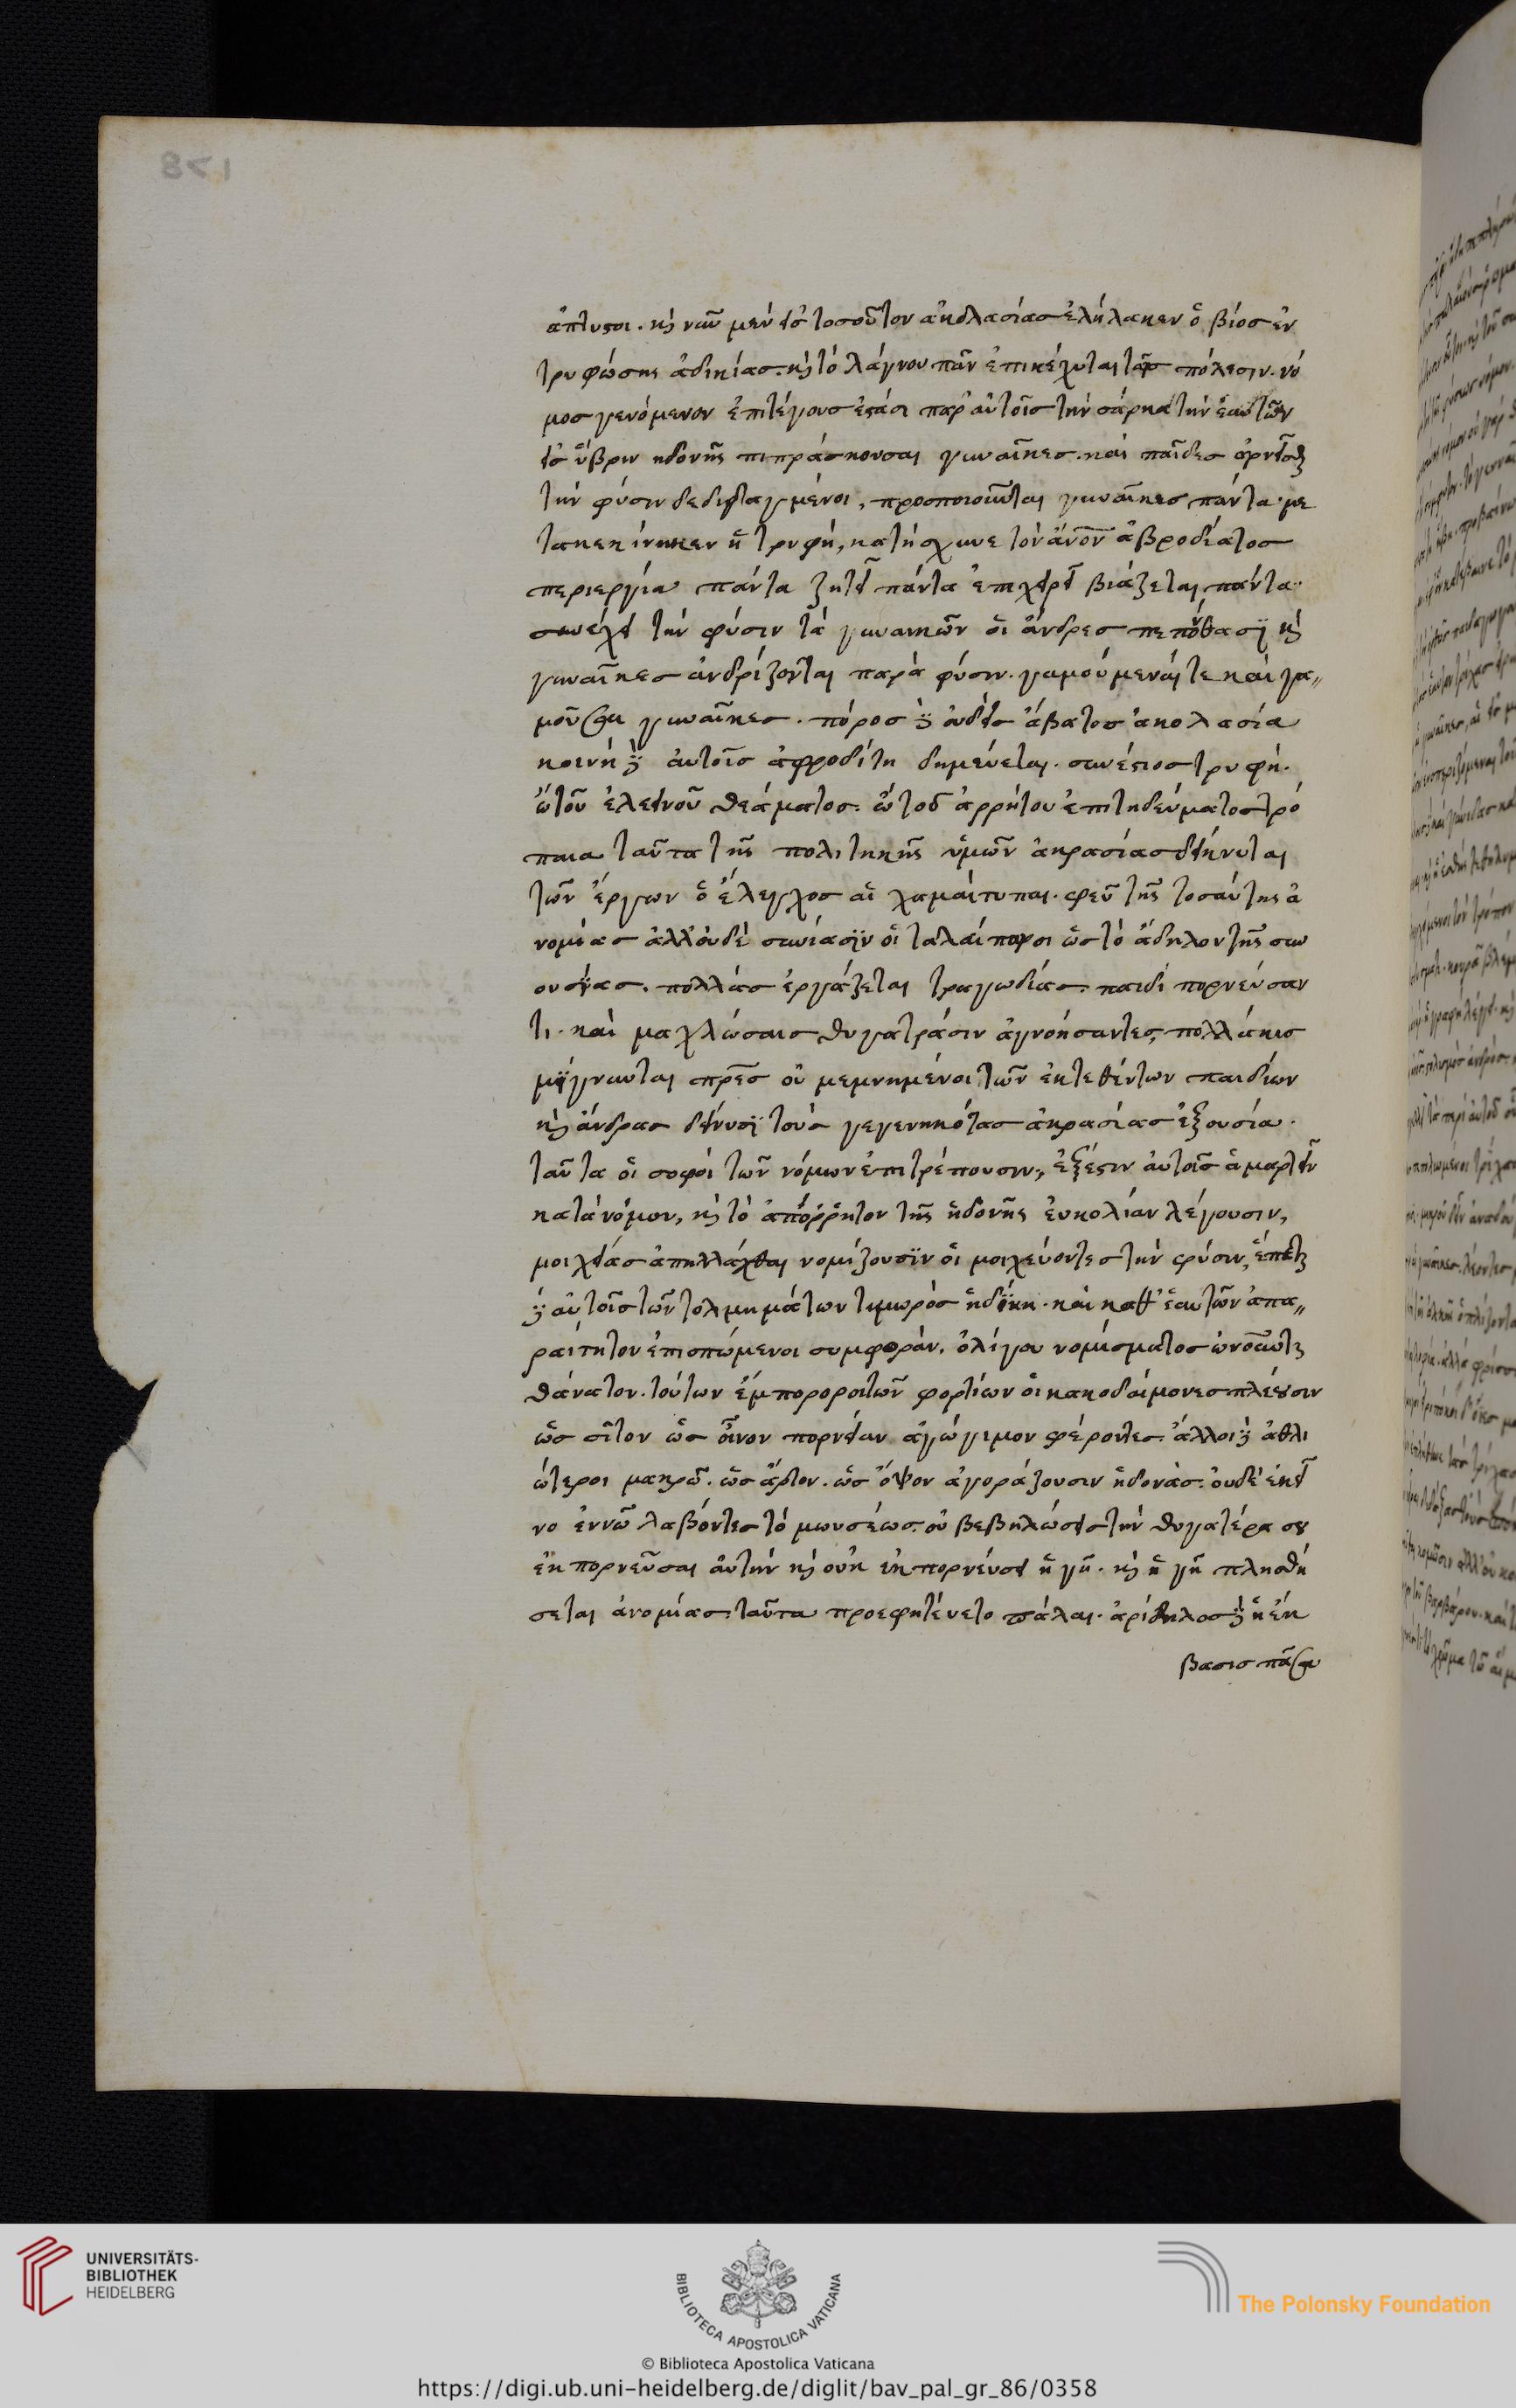 ἄπλυτοι. καὶ νῦν μὲν εἰς τοσοῦτον ἀκολασίας ἐλήλακεν ὁ βίος ἐν
τρυφώσης ἀδικίας. καὶ τὸ λάγνον πᾶν ἐπικέχυται ταῖς πόλεσιν. νό
μος γενόμενον ἐπὶ τέγους ἑστᾶσι παρ' αὐτοῖς τὴν σάρκα τὴν ἑαυτῶν
εἰς ὕβριν ἡδονῆς πιπράσκουσαι γυναῖκες. καὶ παῖδες ἀρνεῖσθαι
τὴν φύσιν δεδιδαγμένοι, προσποιοῦνται γυναῖκες πάντα. με
τακεκίνηκεν ἡ τρυφή, κατῄσχυνε τὸν ἄνον ἁβροδίαιτος
περιεργία πάντα ζητεῖ πάντα ἐπιχειρεῖ βιάζεται πάντα.
συνέχει τὴν φύσιν τὰ γυναικῶν οἱ ἄνδρες πεπόνθασϊ καὶ
γυναῖκες ἀνδρίζονται παρὰ φύσιν. γαμούμεναί τε καὶ γα„
μοῦσαι γυναῖκες. πόρος δὲ οὐδεὶς ἄβατος ἀκολασία
κοινὴ δὲ αὐτοῖς ἀφροδίτη δημεύεται. συνέστιος τρυφή.
ὢ τοῦ ἐλεεινοῦ θεάματος. ὢ τοῦ ἀρρήτου ἐπιτηδεύματος τρό
παια ταῦτα τῆς πολιτικῆς ὑμῶν ἀκρασίας δείκνυται
τῶν ἔργων ὁ ἔλεγχος αἱ χαμαίτυπαι. φεῦ τῆς τοσαύτης ἀ
νομίας ἀλλ' οὐδὲ συνίασϊν οἱ ταλαίπωροι ὡς τὸ ἄδηλον τῆς συν
ουσϊας. πολλὰς ἐργάζεται τραγωδίας. παιδὶ πορνεύσαν
τι. καὶ μαχλώσαις θυγατράσιν ἀγνοήσαντες, πολλάκις
μϊγνυνται πρες οὐ μεμνημένοι τῶν ἐκτεθέντων παιδίων
καὶ ἄνδρας δείκνυσϊ τοὺς γεγεννηκότας ἀκρασίας ἐξουσία.
ταῦτα οἱ σοφοὶ τῶν νόμων ἐπιτρέπουσιν, ἔξεστιν αὐτοῖς ἁμαρτεῖν
κατὰ νόμον, καὶ τὸ ἀπόρρητον τῆς ἡδονῆς εὐκολίαν λέγουσιν,
μοιχείας ἀπηλλάχθαι νομίζουσϊν οἱ μοιχεύοντες τὴν φύσιν, ἕπεται
δὲ αὐτοῖς τῶν τολμημάτων τιμωρὸς ἡ δϊκη. καὶ καθ' ἑαυτῶν ἀπα„
ραίτητον ἐπισπώμενοι συμφοράν. ὀλίγου νομίσματος ὠνοῦνται
θάνατον. τούτων ἔμποροροι τῶν φορτίων οἱ κακοδαίμονες πλέουσιν
ὡς σῖτον ὡς οἶνον πορνείαν ἀγώγιμον φέροντες. ἄλλοι δὲ ἀθλι
ώτεροι μακρῶ. ὡς ἄρτον. ὡς ὄψον ἀγοράζουσιν ἡδονάς. οὐδὲ ἐκεῖ
νο ἐν νῶ λαβόντες τὸ μωυσέως. οὐ βεβηλώσεις τὴν θυγατέρα σου
ἐκπορνεῦσαι αὐτὴν καὶ οὐκ ἐκπορνεύσει ἡ γῆ. καὶ ἡ γῆ πλησθή
σεται ἀνομίας. ταῦτα προεφητεύετο πάλαι. ἀρίδηλος δὲ ἡ ἔκ
βασις πᾶσα
UNIVERSITÄTS-
BIBLIOTHEK
HEIDELBERG
BIBLIOTECA APOSTOLICA VATICANA
The Polonsky Foundation
© Biblioteca Apostolica Vaticana
https://digi.ub.uni-heidelberg.de/diglit/bav_pal_gr_86/0358